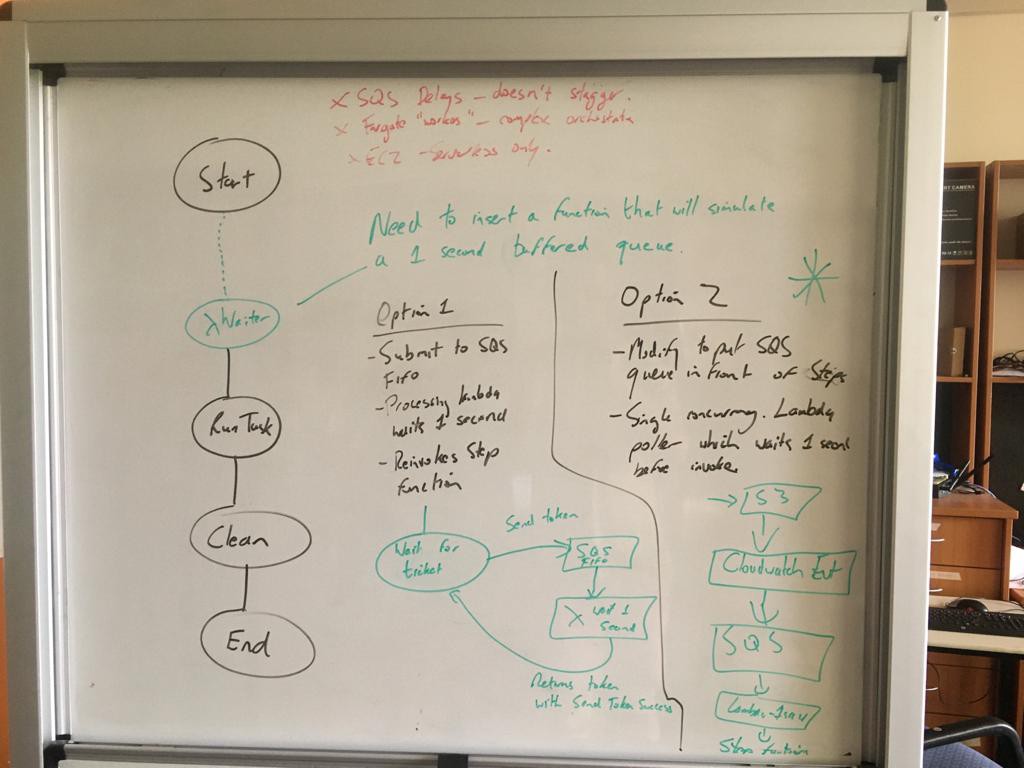 x SQS Delays - doesn't stagger.
x Fargate "workers" - complex
x EC2 - Serverless only.
Start
Need to insert a function that will simulate
a 1 second buffered queue.
λWaiter
Run Task
Clean
End
Option 1
- Submit to SQS
FIFO
- Processing lambda
waits 1 second
- Reinvokes Step
function
Wait for
ticket
Send token
SQS
FIFO
λ wait 1
second
Returns token
with Send Token Success
Option 2
- Modify to put SQS
queue in front of Steps
- Single concurrency. Lambda
poller which waits 1 second
before invoke.
S3
Cloudwatch Evt
SQS
Lambda - 1
Step function
CAMERA